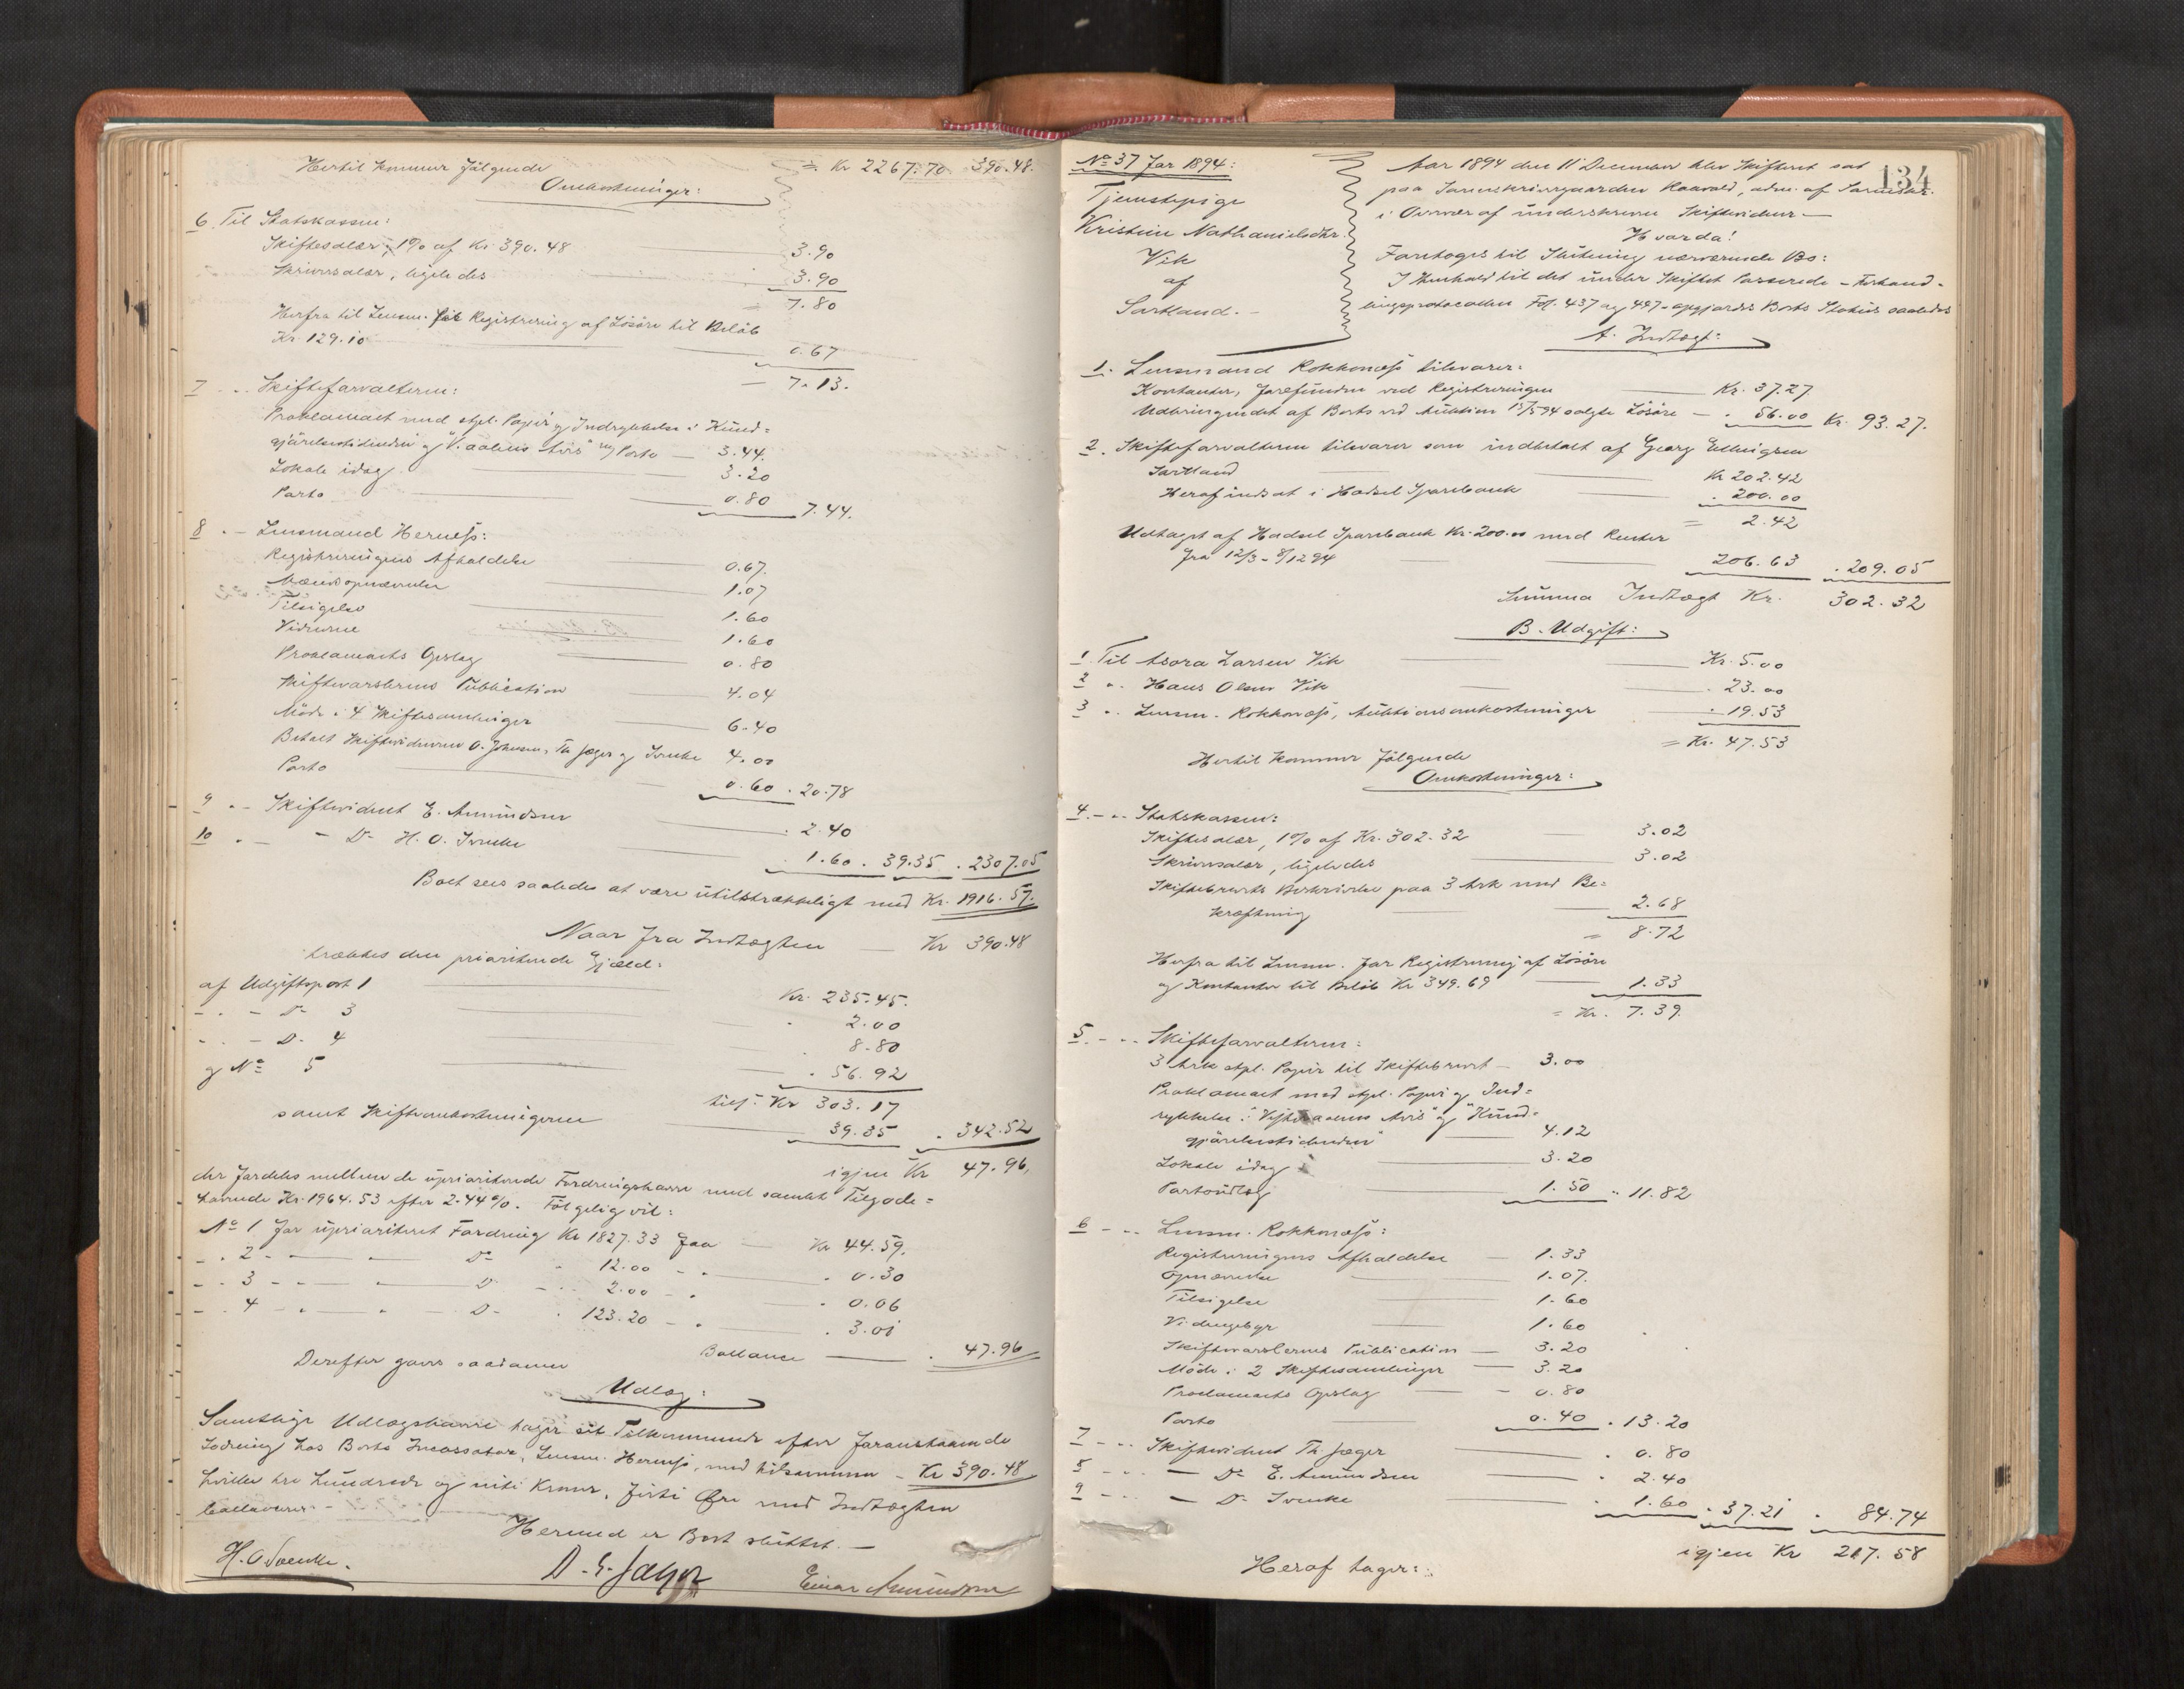 Hertil kommer følgende = Kr 2267.70 390.48.
Omkostninger:
6. Til Statskassen:
Skiftesalær, 1% af Kr. 390.48 3.90
Skriversalær, ligeledes 3.90
= 7.80
Herfra til Lensm. for Registrering af Løsøre til Beløb
Kr. 129.10 0.67
= 7.13.
7 - - Skifteforvalteren:
Proklamaet med stpl. Papir og Indrykkelse i Kund=
gjørelsestidenden og "V.aalens Avis" og Porto - 3.44.
Lokale idag 3.20
Porto 0.80 7.44.
8 - - Lensmand Herness:
Registreringens Afholdelse 0.67.
Mænds opnævnelse 1.07
Tilsigelse 1.60
Vidnerne 1.60
Proklamaets Opslag 0.80
Skiftevarslernes Publication 4.04
Møde i 4 Skiftesamlinger 6.40
Betalt Skiftevidnerne O. Johnsen, Th Jæger og Svenke 4.00
Porto 0.60 . 20.78
9 - - Skiftevidnet E. Amundsen . 2.40
10 - - Do H. O. Svenke . 1.60 . 39.35 . 2307.05
Boet sees saaledes at være utilstrækkeligt med Kr. 1916.57.
Naar fra Indtægten - Kr 390.48
trækkes den prioriterede Gjæld:
af Udgiftspost 1 Kr. 235.45.
- . - Do 3 . 2.00
- . - Do 4 . 8.80
og No 5 . 56.92
tils. Kr 303.17
samt Skifteomkostningerne 39.35 . 342.52
igjen Kr 47.96.
der fordeles mellem de uprioriterede Fordringshavere med samlet Tilgode=
havende Kr. 1964.53 efter 2.44%. Følgelig vil:
No 1 for uprioriteret Fordring Kr 1827.33 faa - Kr 44.59.
- . 2 - Do . 12.00 - . . 0.30
- . 3 - Do . 2.00 - . . 0.06
- . 4 - Do . 123.20 - . . 3.01
Ballance . 47.96
Derefter gaves saadanne
Udlæg:
Samtlige Udlægshavere tager sit Tilkommende efter foranstaaende
Lodning hos Boets Incassator, Lensm. Herness, med tilsammen - Kr 390.48
hvilke tre hundrede og niti Kroner, firti Øre med Indtægten
ballancerer -
Hermed er Boet sluttet. -
H. O Svenke. D. G. Jæger Einar Amundsen
134
No 37 for 1894:
Tjenestepige
Kristine Nathanielsdtr.
Vik
af
Sortland. -
Aar 1894 den 11 December blev Skifteret sat
paa Sorenskrivergaarden Raavold, adm. af Sorenskr.
i Overvær af underskrevne Skiftevidner -
Hvorda!
Foretoges til Slutning nærværende Bo:
I Henhold til det under Skiftet Passerede - Forhand-
lingsprotocollen Fol. 437 og 497 - opgjordes Boets Status saaledes
A. Indtægt:
1. Lensmand Rokkoness tilsvarer:
Kontanter, forefunden ved Registreringen Kr. 37.27.
Udbringendet af Boets ved Auktion 15/5 94 solgte Løsøre - . 56.00 Kr. 93.27.
2. Skifteforvalteren tilsvarer som indbetalt af Georg Ellingsen
Sortland Kr 202.42
Heraf indsat i Hadsel Sparebank . 200.00
= 2.42
Udtaget af Hadsel Sparebank Kr. 200.00 med Renter
fra 12/3 - 8/12 94 206.63 . 209.05
Summa Indtægt Kr. 302.32
B. Udgift:
1. Til Asora Larsen Vik Kr. 5.00
2 - . Hans Olsen Vik . 23.00
3 - . Lensm. Rokkoness, Auktionsomkostninger . 19.53
= Kr. 47.53
Hertil kommer følgende
Omkostninger:
4. - - Statskassen:
Skiftesalær, 1% af Kr. 302.32 3.02
Skriversalær, ligeledes 3.02
Skiftebrevets Beskrivelse paa 3 Ark med Be=
kræftning 2.68
= 8.72
Herfra til Lensm. for Registrering af Løsøre
og Kontanter til Beløb Kr 349.69 1.33
= Kr. 7.39.
5. - - Skifteforvalteren:
3 Ark stpl. Papir til Skiftebrevet - 3.00
Proklamaet med stpl. Papir og Ind=
rykkelse i "Vesteraalens Avis" og "Kund=
gjørelsestidenden" 4.12
Lokale idag 3.20
Portoudlæg 1.50 . 11.82
6 - - Lensm. Rokkoness:
Registreringens Afholdelse 1.33
Opnævnelse 1.07.
Tilsigelse 1.60
Vidnegebyr 1.60
Skiftevarslernes Publication 3.20
Møde i 2 Skiftesamlinger 3.20
Proclamaets Opslag 0.80
Porto 0.40 . 13.20
7 - - Skiftevidnet Th. Jæger . 0.80
8 - - Do E. Amundsen . 2.40
9 - - Do Svenke . 1.60 . 37.21 . 84.74
igjen Kr 217.58
Heraf tager: